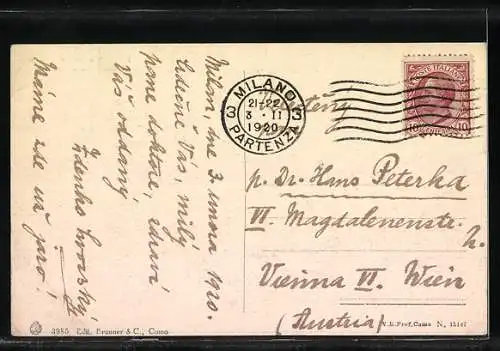 Milán, dne 3. února 1920.
Srdečně Vás, milý
pane doktore, zdraví
Váš oddaný
Zdenko
Máme zde už jaro!
MILANO
3 3
21-22
3·II
1920
PARTENZA
POSTE ITALIANE
10 10
p. Dr. Hans Peterka
VI. Magdalenenstr.
Vienna VI. Wien
(Austria)
3985 Edit. Brunner & C., Como
N.